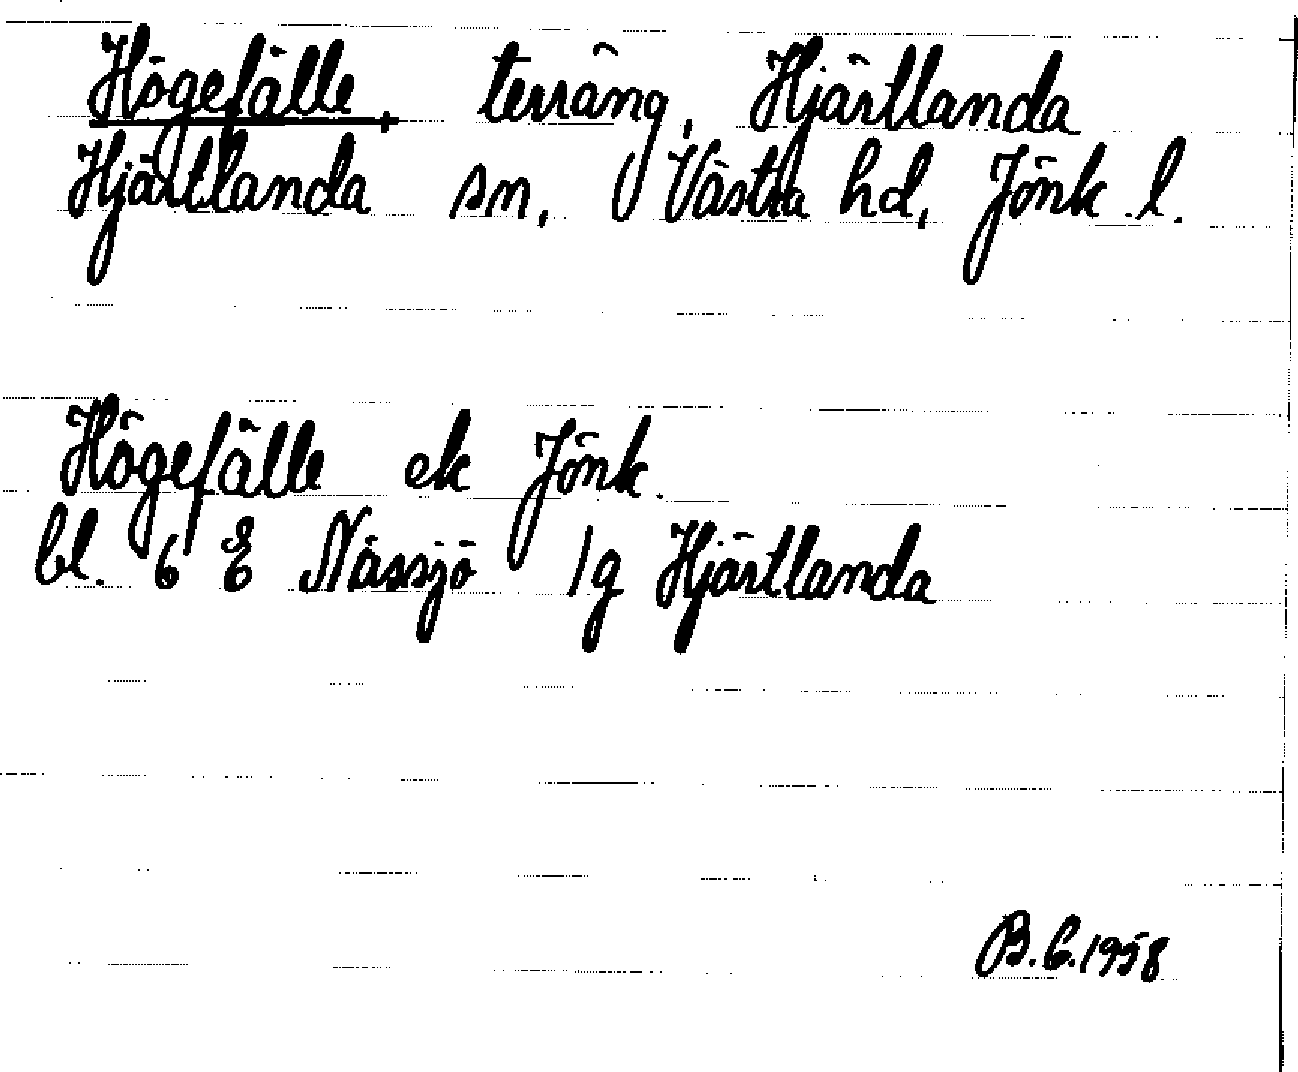 Högefälle, terräng, Hjärtlanda
Hjärtlanda sn, Västra hd, Jönk. l.
Högefälle ek Jönk.
bl. 6 E Nässjö 1g Hjärtlanda
B.C. 1958